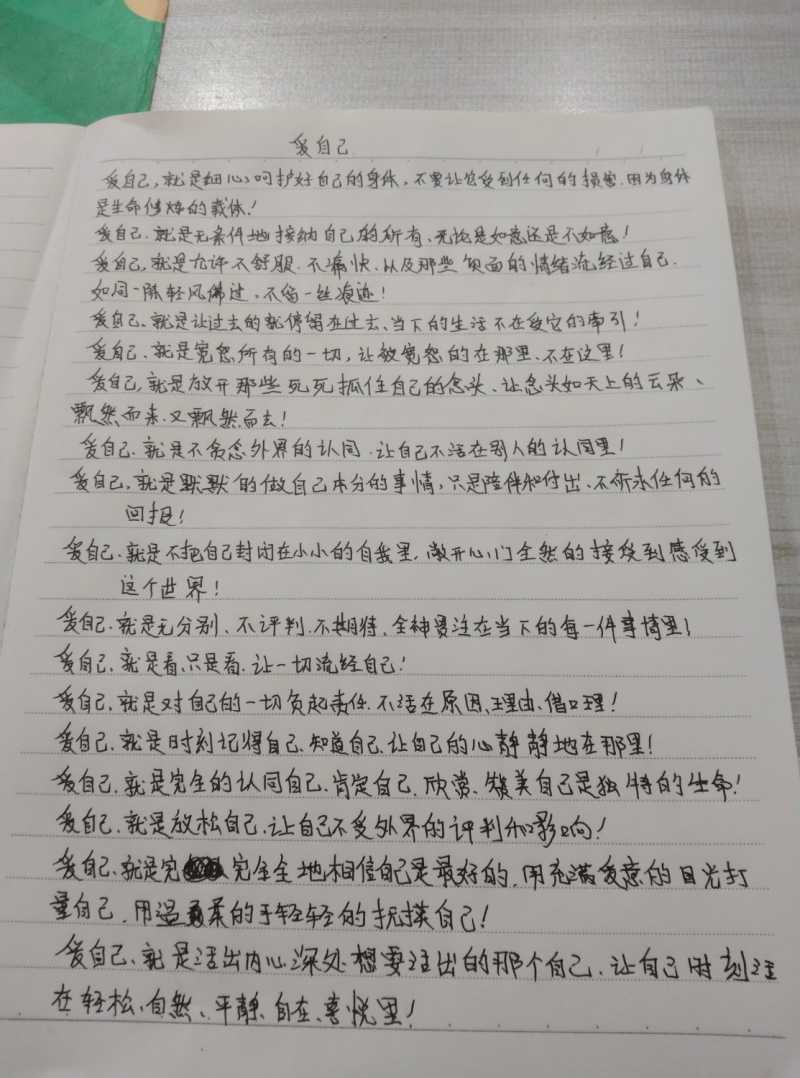 爱自己
爱自己,就是细心呵护好自己的身体,不要让它受到任何的损害.因为身体
是生命修炼的载体!
爱自己.就是无条件地接纳自己的所有、无论是如意还是不如意!
爱自己,就是允许不舒服.不痛快.以及那些负面的情绪流经过自己.
如同一阵轻风佛过,不留一丝痕迹!
爱自己、就是让过去的就停留在过去、当下的生活不在受它的牵引!
爱自己、就是宽恕所有的一切,让被宽恕的在那里、不在这里!
爱自己,就是放开那些死死抓住自己的念头、让念头如天上的云朵、
飘然而来.又飘然而去!
爱自己.就是不贪念外界的认同.让自己不活在别人的认同里!
爱自己,就是默默的做自己本分的事情,只是陪伴和付出、不祈求任何的
回报!
爱自己.就是不把自己封闭在小小的自我里.敞开心门全然的接受到感受到
这个世界!
爱自己.就是无分别、不评判.不期待、全神贯注在当下的每一件事情里!
爱自己.就是看.只是看.让一切流经自己!
爱自己,就是对自己的一切负起责任.不活在原因、理由、借口理!
爱自己.就是时刻记得自己.知道自己.让自己的心静静地在那里!
爱自己.就是完全的认同自己.肯定自己.欣赏、赞美自己是独特的生命!
爱自己.就是放松自己.让自己不受外界的评判和影响!
爱自己、就是完完全全地相信自己是最好的.用充满爱意的目光打
量自己.用温柔的手轻轻的抚摸自己!
爱自己、就是活出内心深处想要活出的那个自己.让自己时刻活
在轻松、自然、平静、自在、喜悦里!